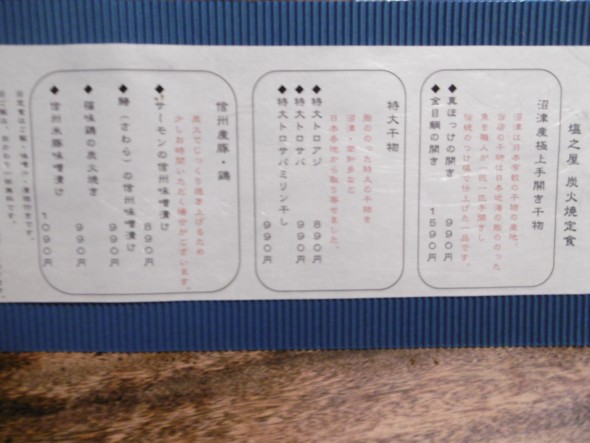 塩之屋 炭火焼定食
沼津産極上手開き干物
沼津は日本有数の干物の産地。
当店の干物は日本近海の脂ののった
魚を職人が一枚一枚手開きし
伝統のつけ塩で仕上げた一品です。
◆真ほっけの開き 990円
◆金目鯛の開き 1590円
特大干物
脂ののった特大の干物を
沼津・愛知県など
日本各地から取り寄せました。
◆特大トロアジ 890円
◆特大トロサバ 990円
◆特大トロサバミリン干し 990円
信州産豚・鶏
炭火でじっくり焼き上げるため
少しお時間いただく場合がございます。
◆サーモンの信州味噌漬け 890円
◆鰆（さわら）の信州味噌漬け 990円
◆福味鶏の炭火焼き 990円
◆信州米豚味噌漬け 1090円